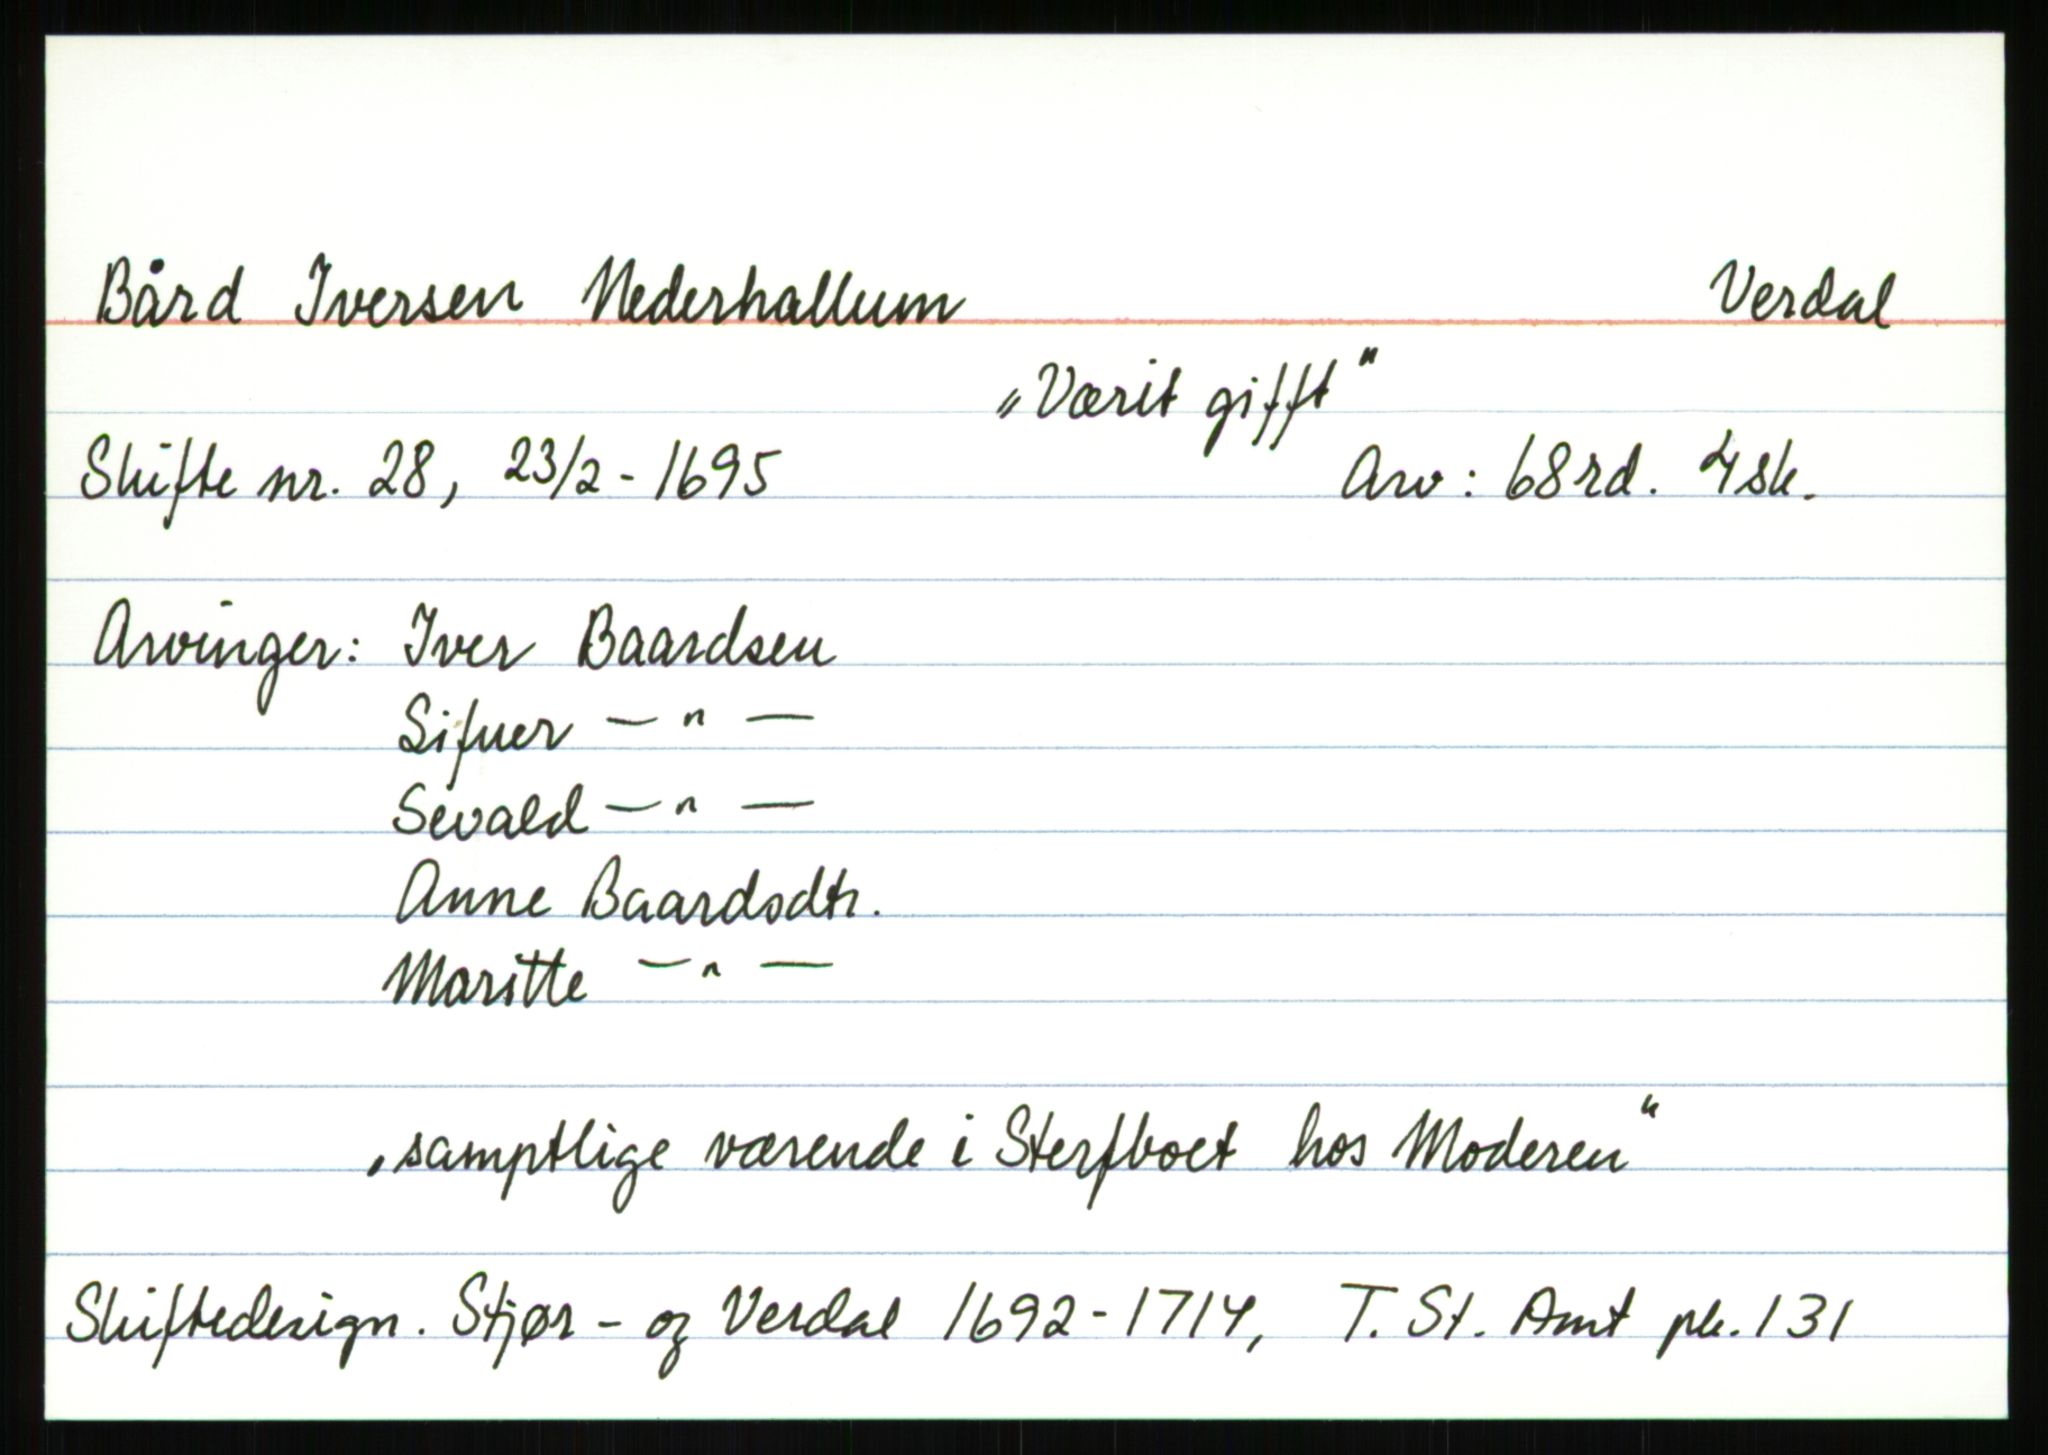 Bård Iversen Nederhallum Verdal
„Værit gifft"
Skifte nr. 28, 23/2 - 1695 Arv: 68 rd. 4 sk.
Arvinger: Iver Baardsen
Sifuer — " —
Sevald — " —
Anne Baardsdtr.
Maritte — " —
„samptlige værende i Sterfboet hos Moderen"
Skiftedesign. Stjør - og Verdal 1692 - 1714, T. St. Amt pk. 131